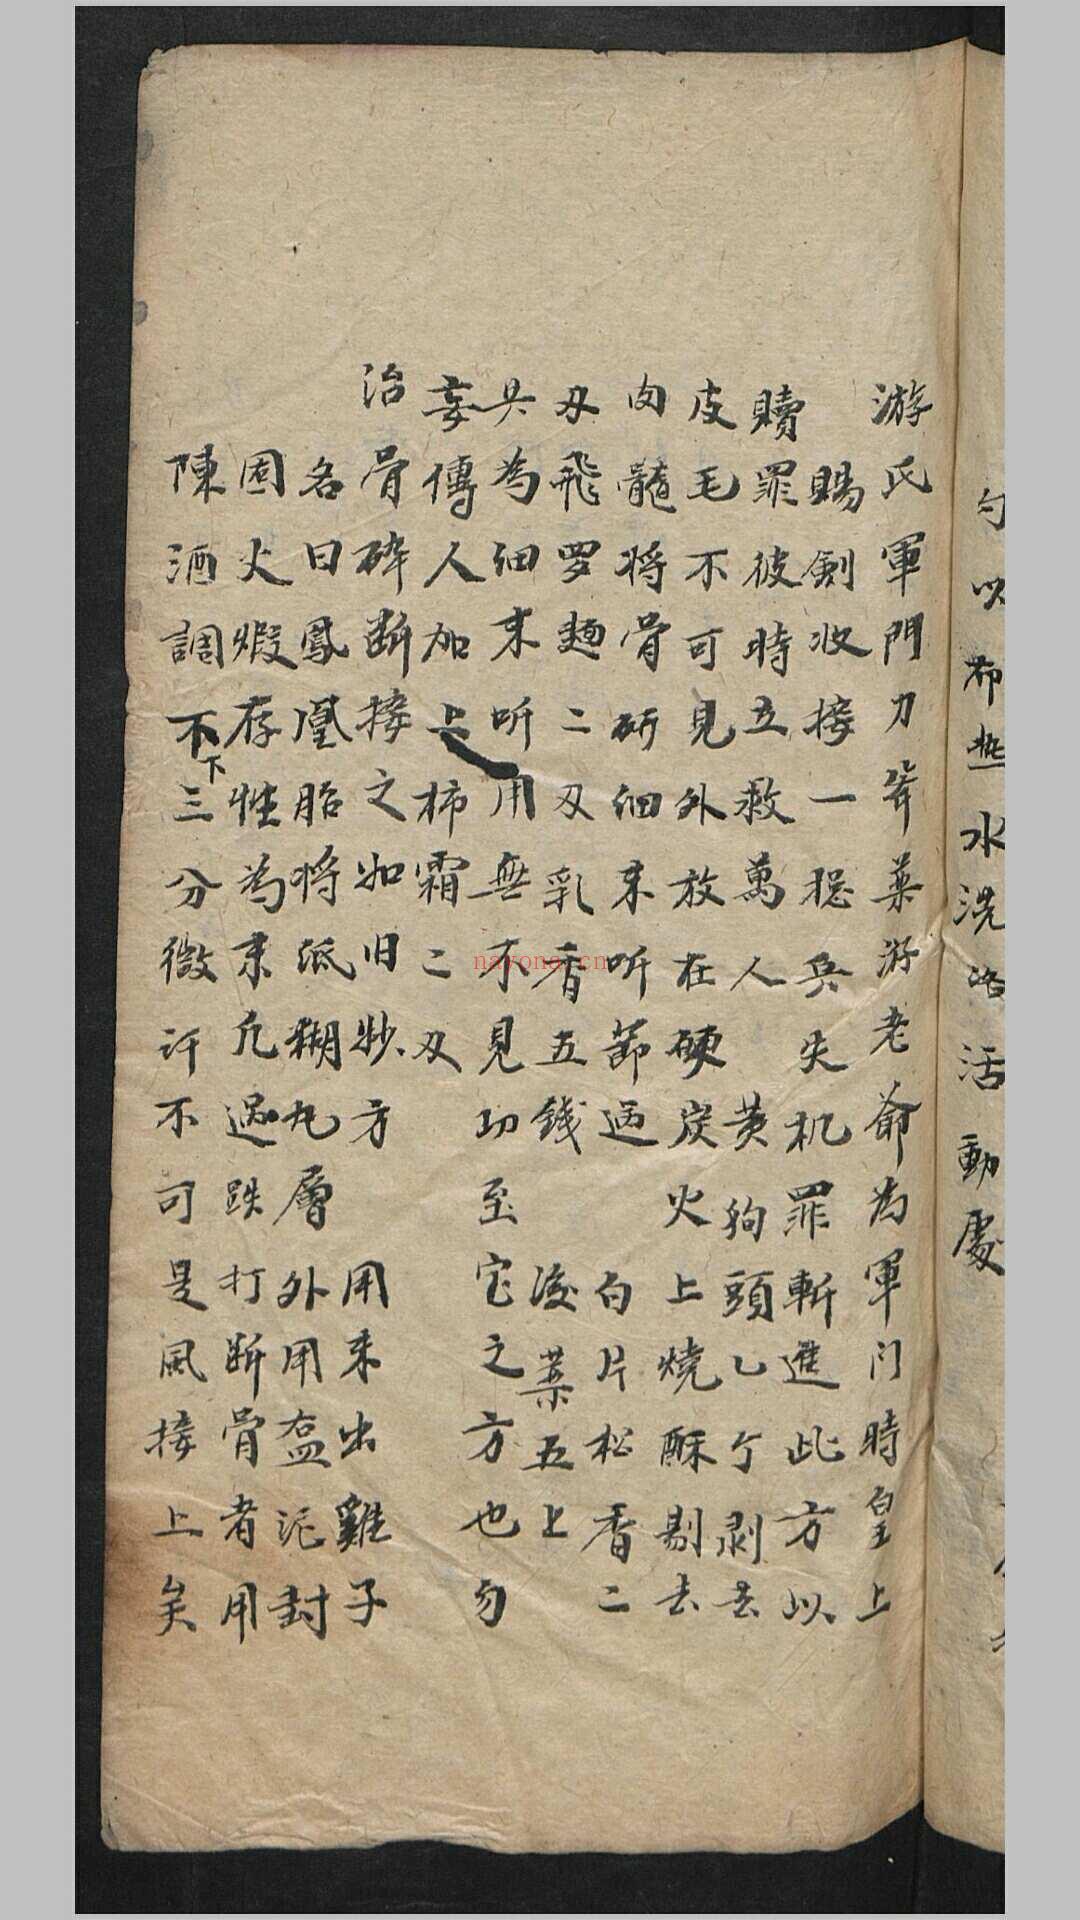 勺以布热水洗洛活動處
游氏軍門刀斧藥游老爺为軍门時皇上
賜劍收接一稳兵失机罪斬進此方以
贖罪彼時立救萬人 黄狗頭乙个剥去
皮毛不可見外放在硬炭火上燒酥剔去
肉髓将骨研细末听節迊 白片松香二
刄飛罗麺二刄乳香五錢 没藥五上
共为细末听用無不見功至宝之方也勿
妄傳人加上柿霜二刄
治骨碎断接之如旧妙方 用未出雞子
名曰鳳凰胎将纸糊九層外用盐泥封
固火煅存性为末凢遇跌打断骨者用
陳酒調下三分微汗不可是風接上矣
nayona.cn